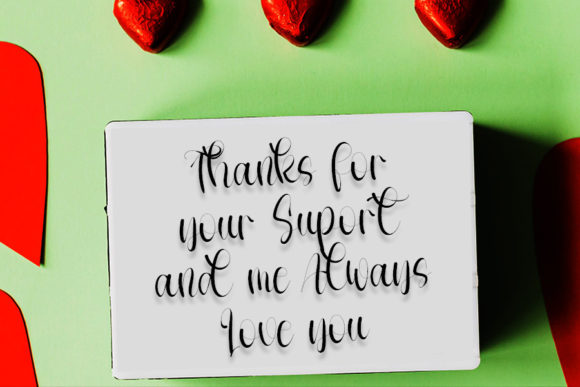 Thanks for
your Suport
and me Always
Love you